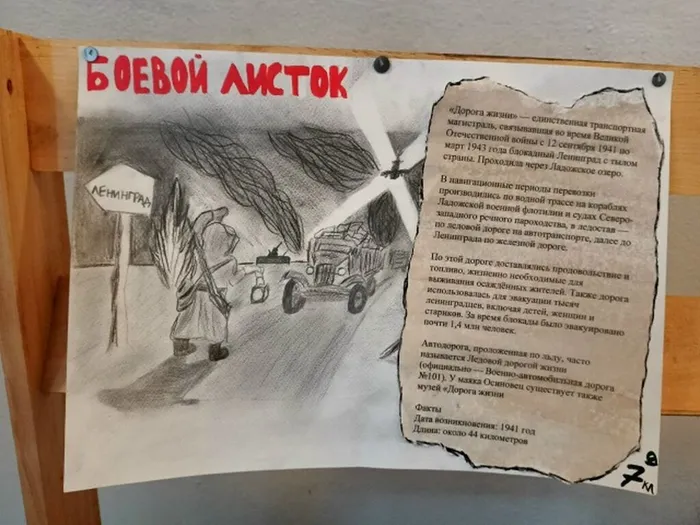 БОЕВОЙ ЛИСТОК
ЛЕНИНГРАД
«Дорога жизни» — единственная транспортная
магистраль, связывавшая во время Великой
Отечественной войны с 12 сентября 1941 по
март 1943 года блокадный Ленинград с тылом
страны. Проходила через Ладожское озеро.
В навигационные периоды перевозки
производились по водной трассе на кораблях
Ладожской военной флотилии и судах Северо-
западного речного пароходства, в ледостав —
по ледовой дороге на автотранспорте, далее до
Ленинграда по железной дороге.
По этой дороге доставлялись продовольствие и
топливо, жизненно необходимые для
выживания осаждённых жителей. Также дорога
использовалась для эвакуации тысяч
ленинградцев, включая детей, женщин и
стариков. За время блокады было эвакуировано
почти 1,4 млн человек.
Автодорога, проложенная по льду, часто
называется Ледовой дорогой жизни
(официально — Военно-автомобильная дорога
№101). У маяка Осиновец существует также
музей «Дорога жизни
Факты
Дата возникновения: 1941 год
Длина: около 44 километров
7 в кл